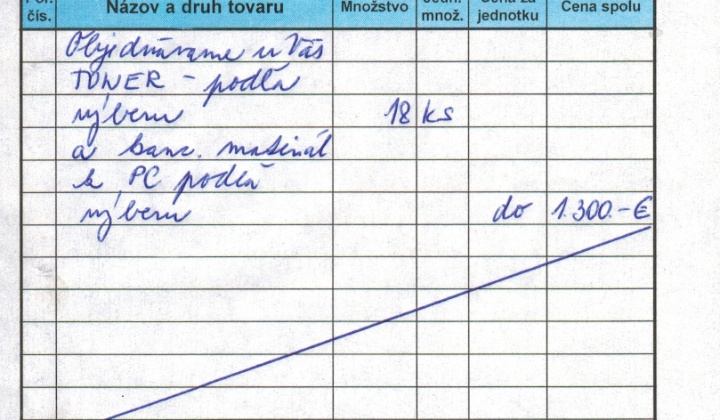 Por. Názov a druh tovaru Množstvo Jedn. Cena za Cena spolu
čís. množ. jednotku
Objednávame u Vás
TONER - podľa
výberu 18 ks
a kanc. materiál
k PC podľa
výberu do 1.300.-€